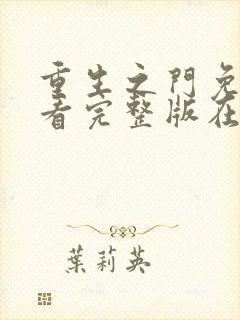 重生之門免
看完整版在
葉莉英